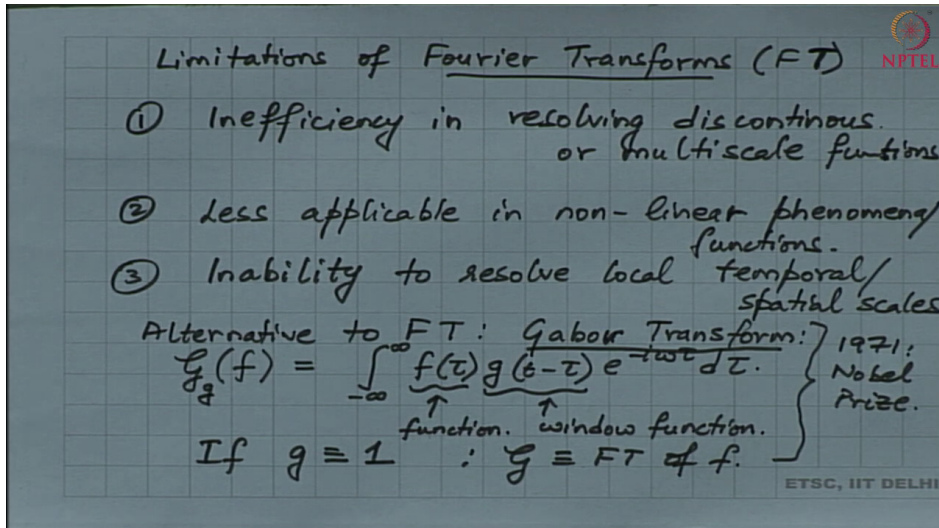 Limitations of Fourier Transforms (FT)
NPTEL
① Inefficiency in resolving discontinous.
or multiscale funtions
② Less applicable in non-linear phenomena/
functions.
③ Inability to resolve local temporal/
spatial scales
Alternative to FT: Gabor Transform:
𝒢_g(f) = ∫_{-∞}^{∞} f(τ) g(t-τ) e^{-iωτ} dτ.
1971:
Nobel
Prize.
↑ function. ↑ window function.
If g ≡ 1 : 𝒢 ≡ FT of f.
ETSC, IIT DELHI